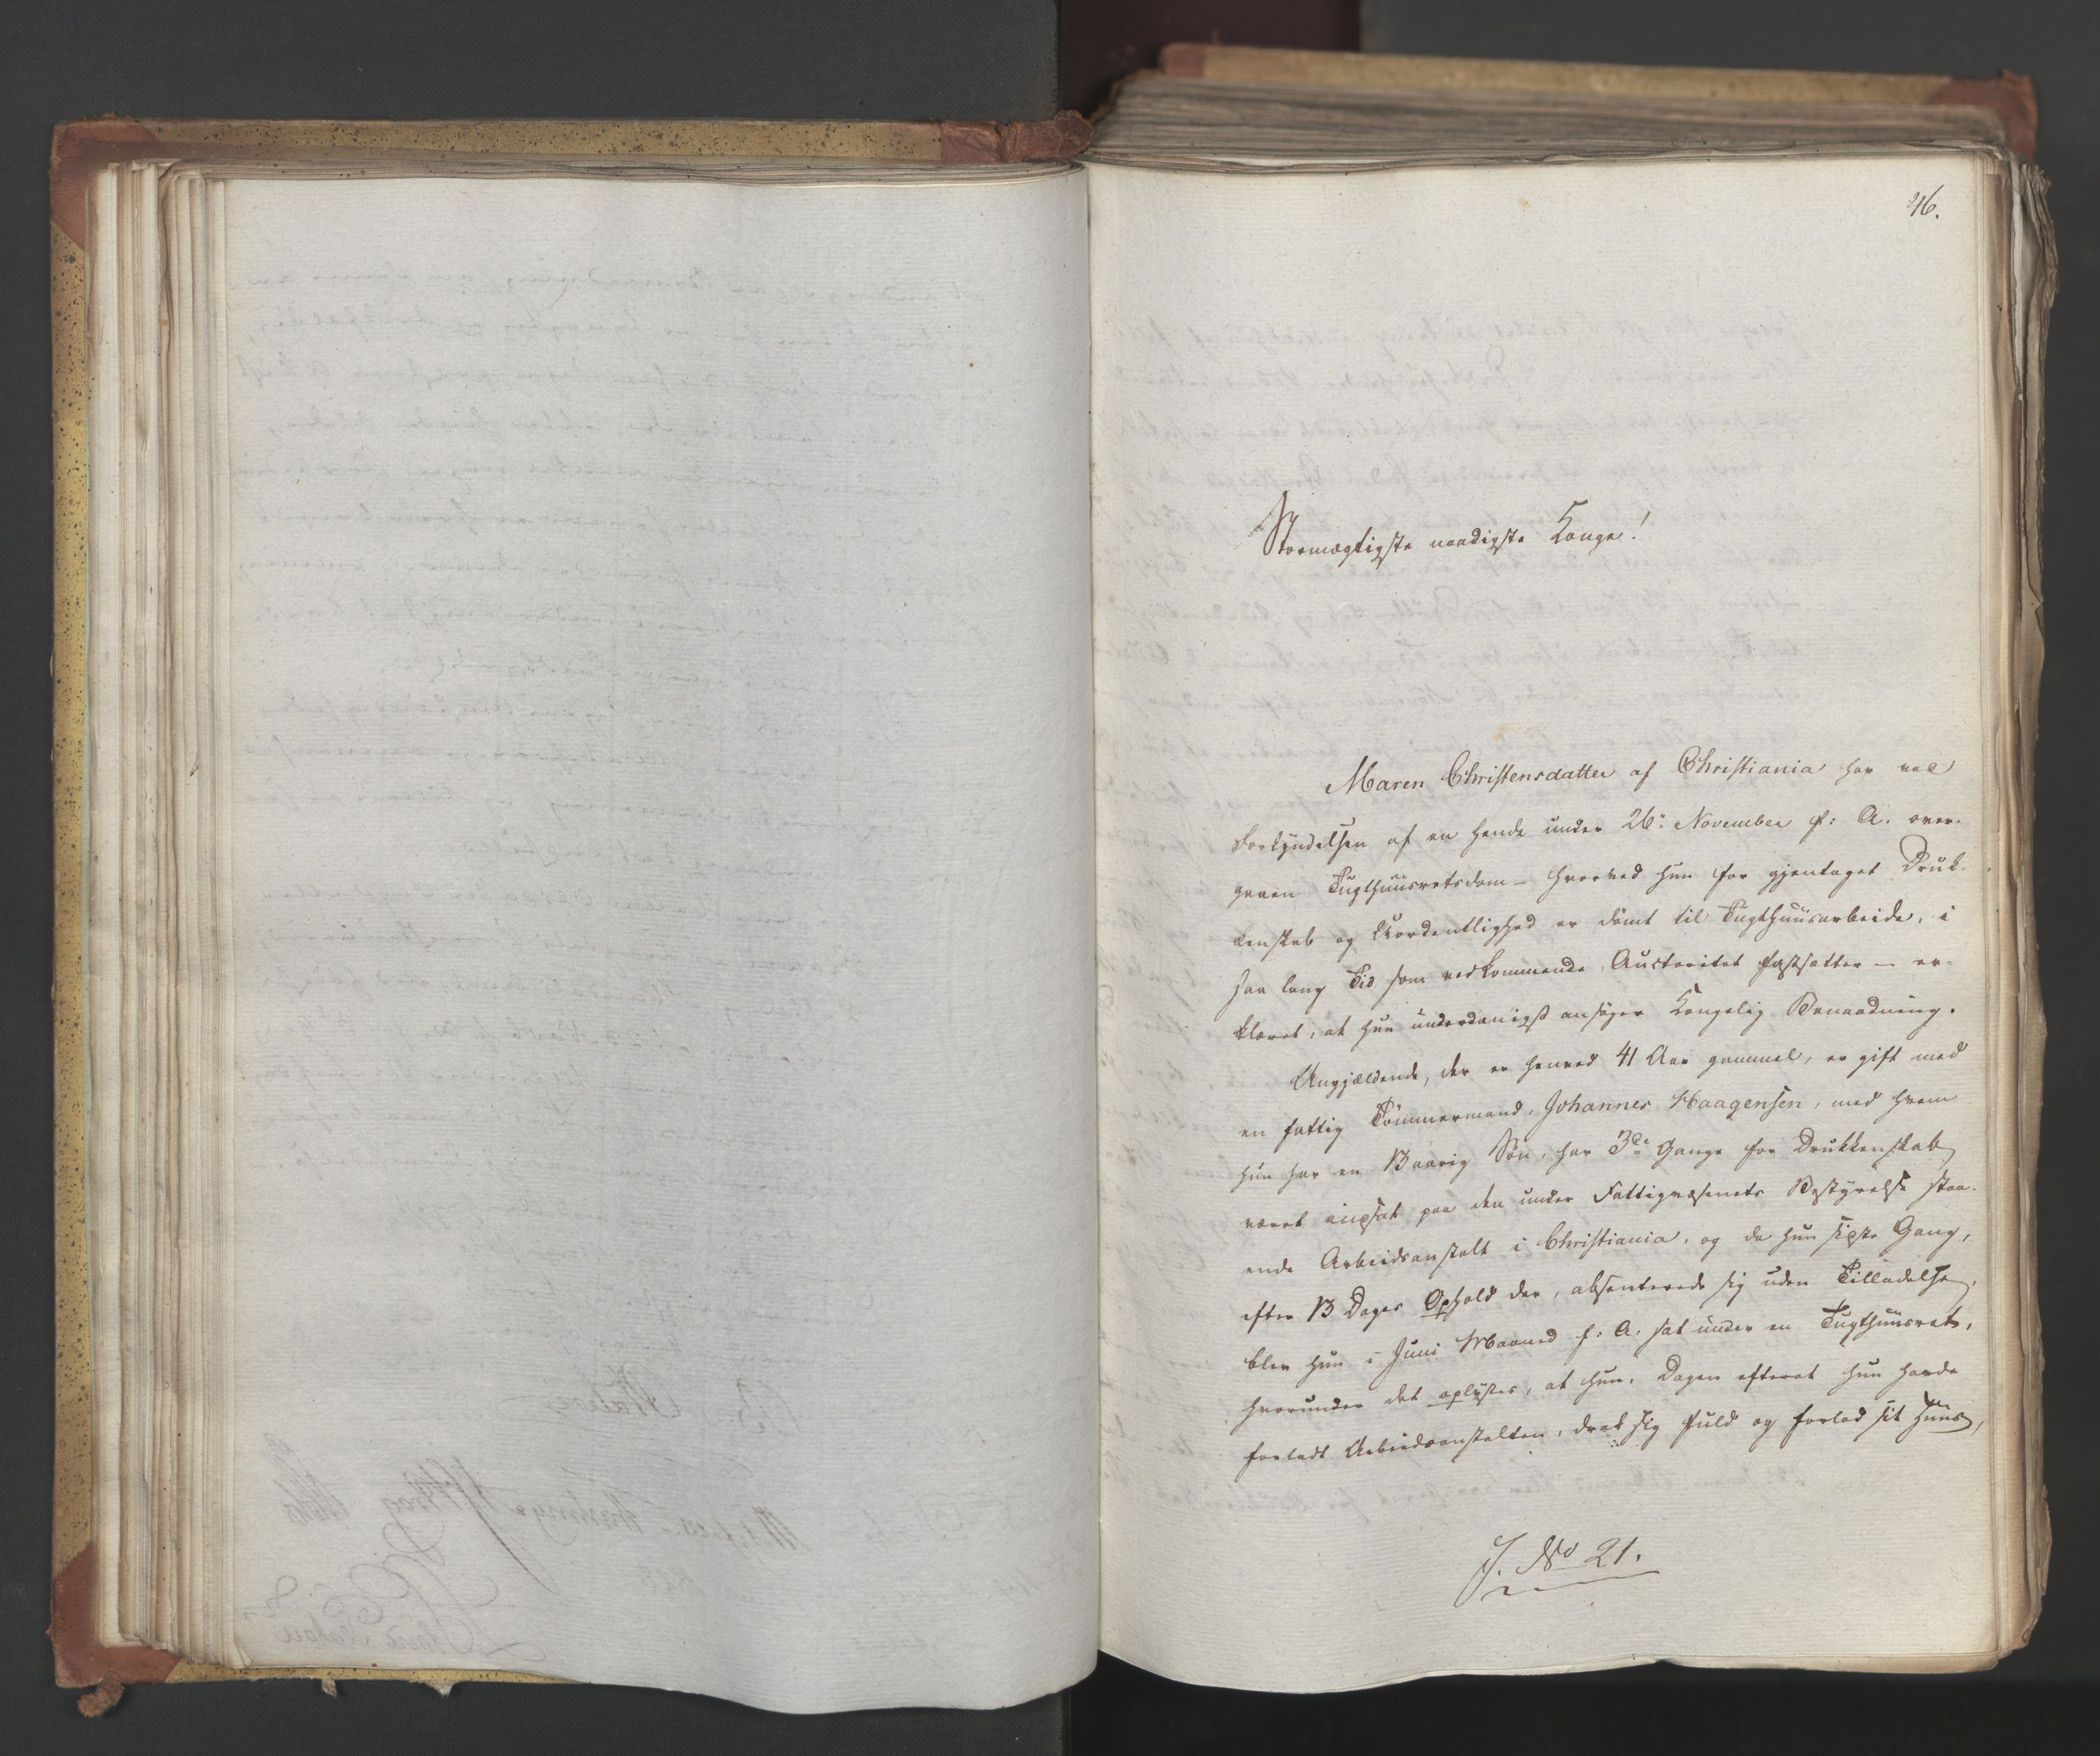 46.
Stormægtigste naadigste Konge!
Maren Christensdatter af Christiania har ved
Forkyndelsen af en hende under 26de November f: A. over-
gaaen Tugthuusretsdom – hvorved hun for gjentaget Druk-
kenskab og Uordentlighed er dömt til Tugthuusarbeide, i
saa lang Tid som vedkommende Auctoritet fastsætter – er-
klæret, at hun underdanigst ansøger Kongelig Benaadning.
Angjældende, der er henved 41 Aar gammel, er gift med
en fattig Tömmermand, Johannes Haagensen, med hvem
hun har en 13 aarig Sön, har 3de Gange for Drukkenskab
været indsat paa den under Fattigvæsenets Bestyrelse staa-
ende Arbeidsanstalt i Christiania, og da hun sidste Gang,
efter 13 Dages Ophold der, absenterede sig uden Tilladelse,
blev hun i Juni Maaned f: A. sat under en Tugthuusret,
hvorunder det oplystes, at hun, Dagen efterat hun havde
forladt Arbeidsanstalten, drak sig fuld og forlod sit Huus,
J. No 21.